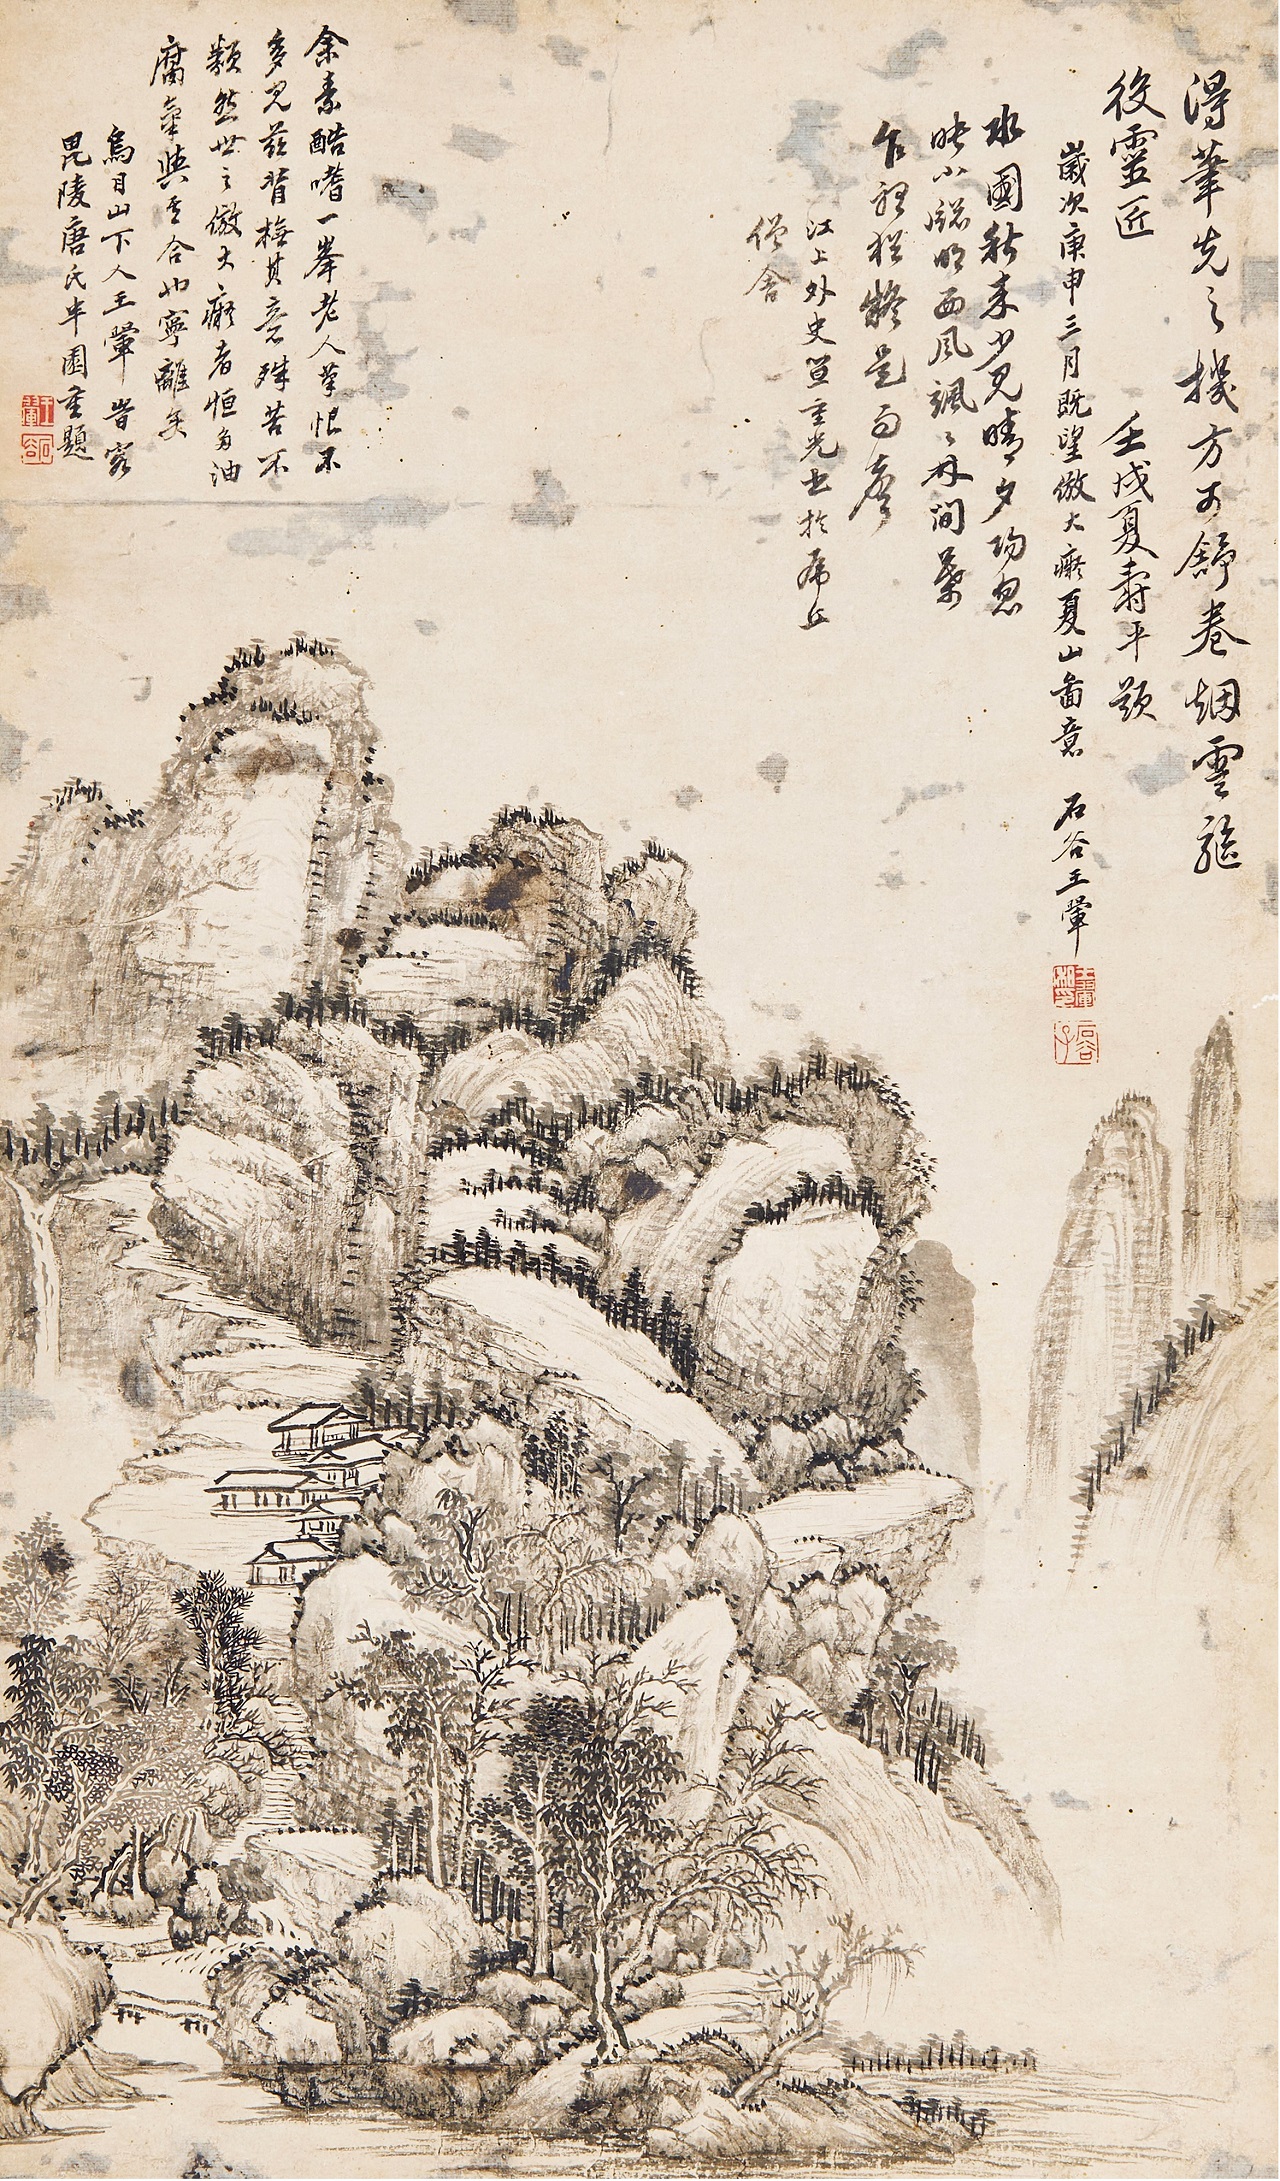 得筆先之機方可舒卷烟雲驅
役靈匠
壬戌夏壽平題
歲次庚申三月既望倣大癡夏山圖意 石谷王翬
水國秋來少見晴夕陽忽
映小窓明西風颯颯林間葉
乍聽猶疑是雨聲
江上外史笪重光書於虎丘
僧舍
余素酷嗜一峯老人筆恨不
多見茲背橅其意殊苦不
類然世之倣大癡者恒多油
腐氣與吾合此寧離矣
烏目山下人王翬皆客
毘陵唐氏半園重題